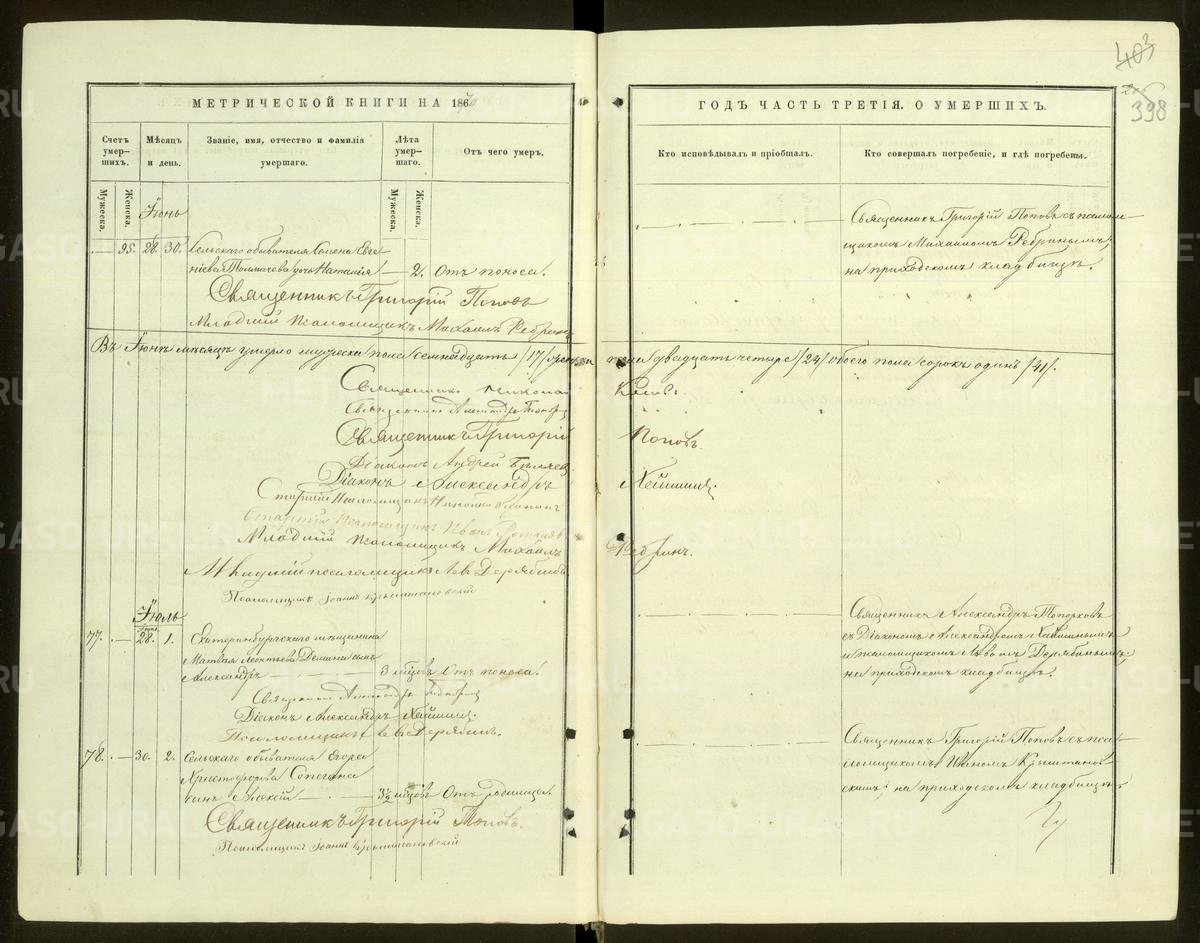 403
398
МЕТРИЧЕСКОЙ КНИГИ НА 1870
Счетъ умер-шихъ.
Мѣсяцъ и день.
Званіе, имя, отчество и фамилія умершаго.
Лѣта умер-шаго.
Отъ чего умеръ.
Мужеска.
Женска.
Мужеска.
Женска.
Іюнь
95. 28. 30. Сельскаго обывателя Семена Евге-
ніева Толмачева дочь Наталія — 2. Отъ поноса.
Священникъ Григорій Поповъ
Младшій Псаломщикъ Михаилъ Ребринъ
Въ Іюнѣ мѣсяцѣ умерло мужеска пола семнадцать /17/ женска
Священникъ Николай
Священникъ Александръ Топорковъ
Священникъ Григорій
Діаконъ Андрей
Діаконъ Александръ
Старшій Псаломщикъ
Старшій Псаломщикъ Иванъ
Младшій Псаломщикъ Михаилъ
Младшій псаломщикъ Левъ Дерябинъ
Псаломщикъ Іоаннъ Крыштановскій
Іюль
77. — 28. 1. Екатеринбургскаго мѣщанина
Матвѣя Леонтьева Демина сынъ
Александръ — 3 мѣсцовъ Отъ поноса.
Священникъ Александръ Топорковъ
Діаконъ Александръ
Псаломщикъ Левъ Дерябинъ.
78. — 30. 2. Сельскаго обывателя Егора
Христофорова
сынъ Алексій — 3½ мѣсцовъ Отъ родимца.
Священникъ Григорій Поповъ.
Псаломщикъ Іоаннъ Крыштановскій
ГОДЪ ЧАСТЬ ТРЕТІЯ. О УМЕРШИХЪ.
Кто исповѣдывалъ и пріобщалъ.
Кто совершалъ погребеніе, и гдѣ погребены.
Священникъ Григорій Поповъ съ псалом-
щикомъ Михаиломъ Ребринымъ,
на приходскомъ кладбищѣ.
пола двадцать четыре /24/ обоего пола сорокъ одинъ /41/.
Поповъ.
Ребринъ.
Священникъ Александръ Топорковъ
съ Діакономъ Александромъ
и псаломщикомъ Львомъ Дерябинымъ
на приходскомъ кладбищѣ.
Священникъ Григорій Поповъ съ пса-
ломщикомъ Иваномъ Крыштанов-
скимъ, на приходскомъ кладбищѣ.